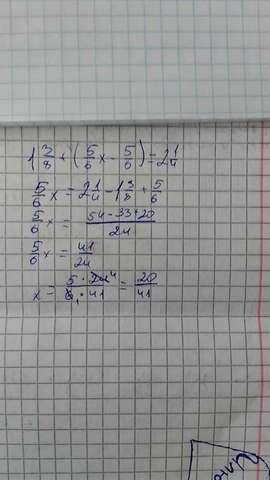 1 3/8 + (5/6 x - 5/6) = 2 1/4
5/6 x = 2 1/4 - 1 3/8 + 5/6
5/6 x = (54 - 33 + 20)/24
5/6 x = 41/24
x = (5 · 24 4)/(6 1 · 41) = 20/41